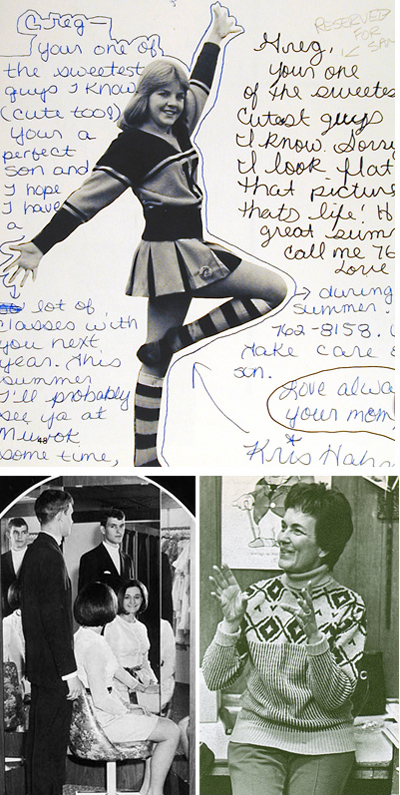 Greg-
Your one of
the sweetest
guys I know
(cute too!)
Your a
perfect
son and
I hope
I have
a
lot of
classes with
you next
year. This
summer
I'll probably
see ya at
Murok
some time,
48
RESERVED
FOR
SAM
Greg,
Your one
of the sweetes
cutest guys
I know. Sorry
I look flat
that picture
thats life! H
great summ
call me 76
Love
during
summer.
762-8158.
Take care
son.
Love alwa
your mom
Kris Hahn